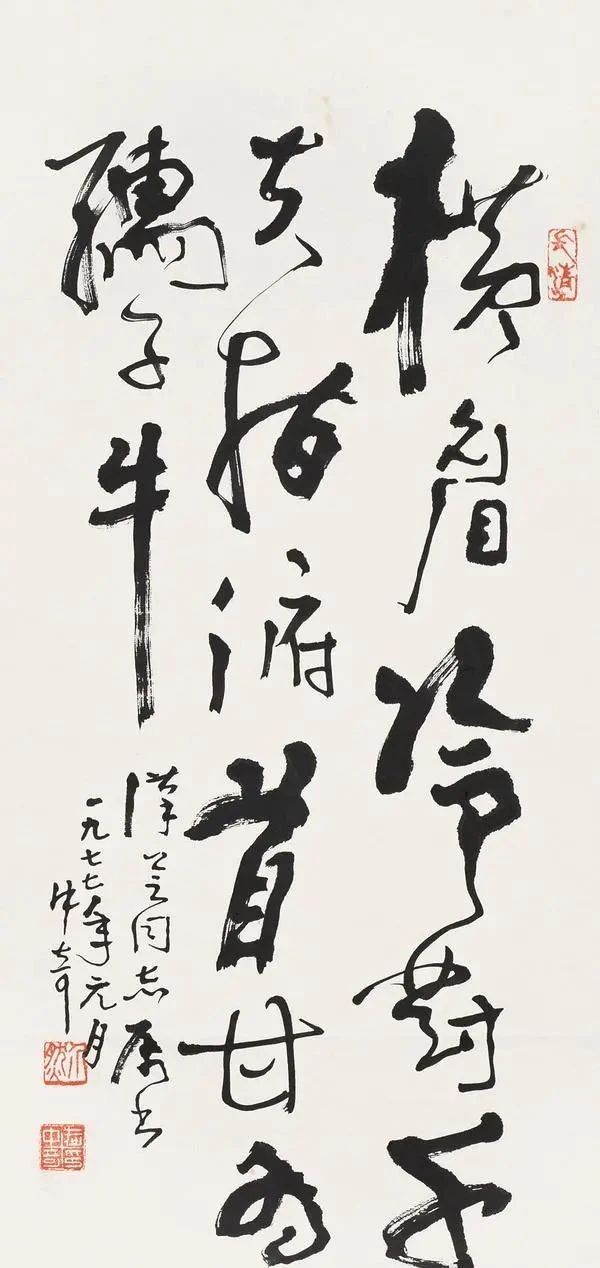 横眉冷對千
夫指俯首甘为
孺子牛
同志属书
一九七七年元月
中奇
长清